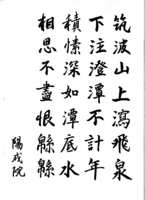 筑波山上瀉飛泉
下注澄潭不計年
積愫深如潭底水
相思不盡恨緜緜
陽成院